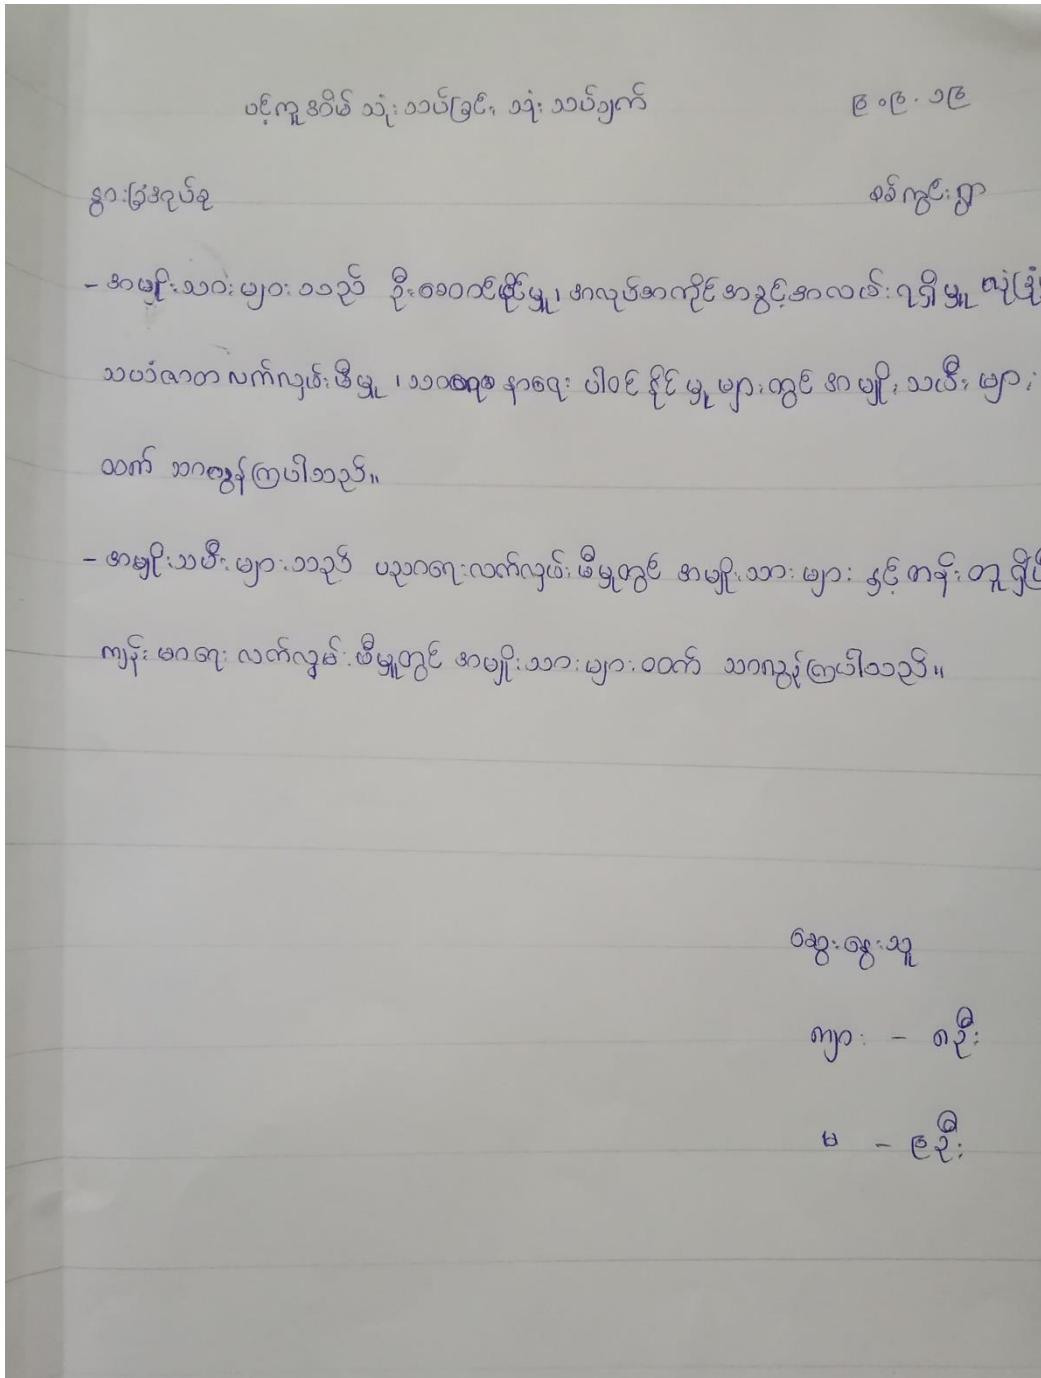 ပင့်ကူအိမ် သုံးသပ်ခြင်း သုံးသပ်ချက် ၉.၉.၁၉
နွားခြံအုပ်စု စစ်ကွင်းရွာ
- အမျိုးသားများသည် ဦးဆောင်နိုင်မှု၊ အလုပ်အကိုင်အခွင့်အလမ်းရရှိမှု လုံခြုံ
သယံဇာတလက်လှမ်းမီမှု ၊ သာရေးနာရေး ပါဝင်နိုင်မှုများတွင် အမျိုးသမီးများ
ထက် သာလွန်ကြပါသည်။
- အမျိုးသမီးများသည် ပညာရေးလက်လှမ်းမီမှုတွင် အမျိုးသားများ နှင့်တန်းတူရှိပြီ
ကျန်းမာရေးလက်လှမ်းမီမှုတွင် အမျိုးသားများထက် သာလွန်ကြပါသည်။
ဆွေးနွေးသူ
ကျား - ၈ဦး
မ - ၉ဦး